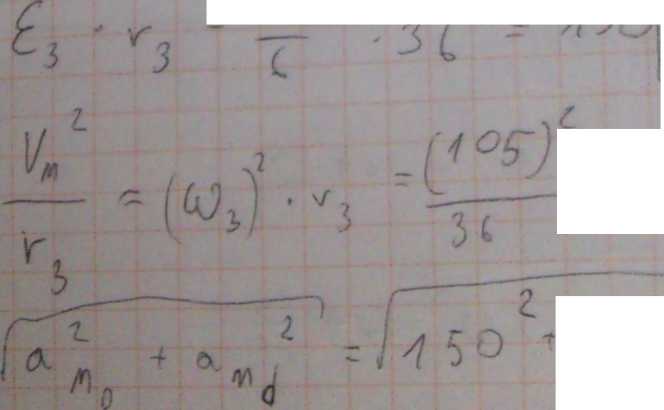 ε₃ · r₃ = — / 6 · 36 = 150
Vₘ² / r₃ = (ω₃)² · r₃ = (105)² / 36
√(a²ₘ₀ + aₘd²) = √(150² +